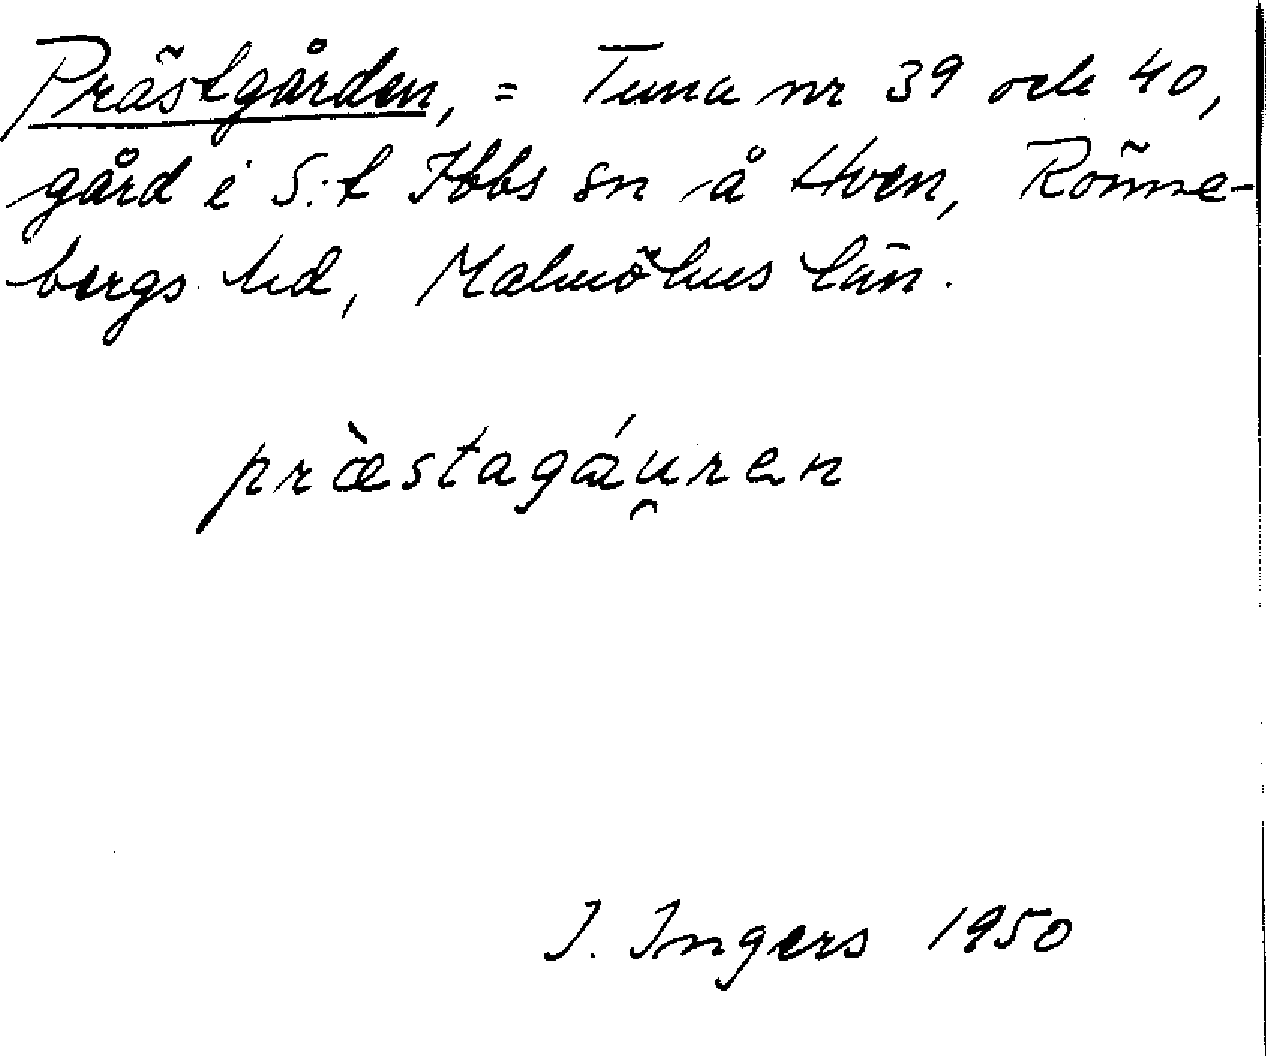 Prästgården, = Tuna nr 39 och 40,
gård i S:t Ibbs sn å Hven, Rönne-
bergs hd, Malmöhus län.
præ̀stagáu̯ren
I. Ingers 1950